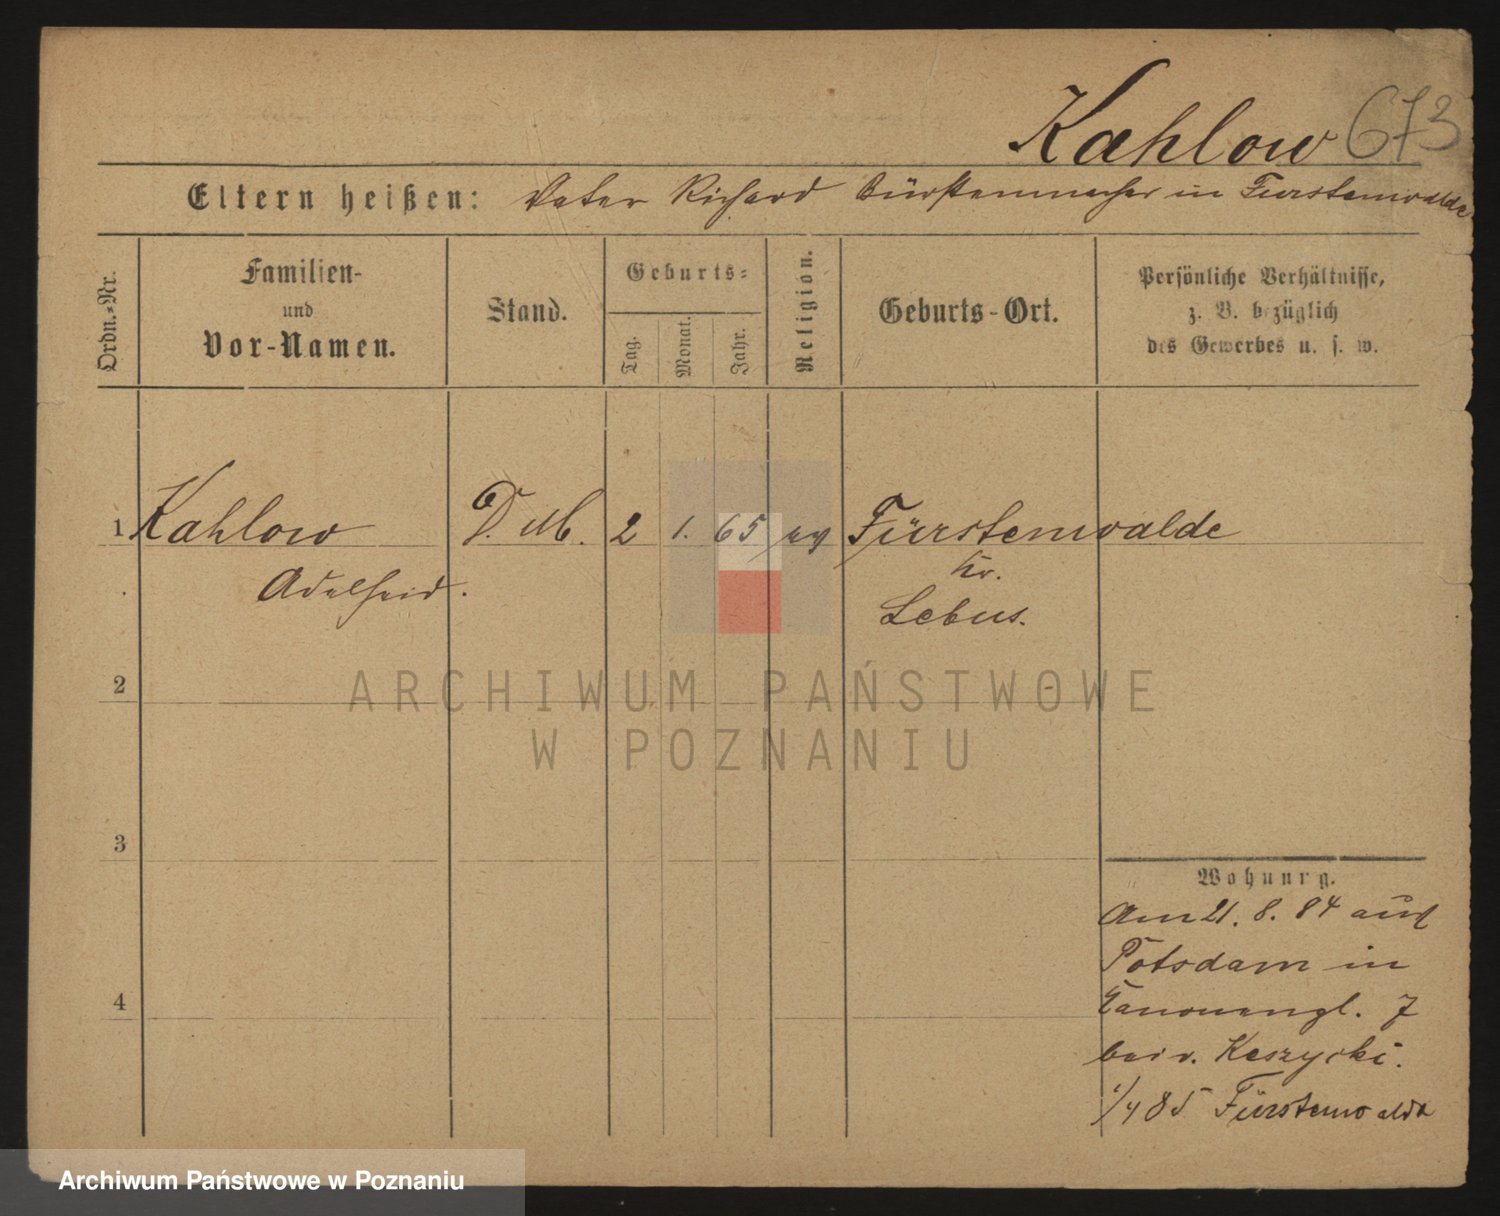 Kahlow 673
Eltern heißen: Vater Richard Bürstenmacher in Fürstenwalde
Ordn.-Nr.
Familien-
und
Vor-Namen.
Stand.
Geburts-
Tag.
Monat.
Jahr.
Religion.
Geburts-Ort.
Persönliche Verhältnisse,
z. B. bezüglich
des Gewerbes u. s. w.
1 Kahlow 2 1. 65 ev Fürstenwalde
Adelheid. Kr.
Lebus.
2
3
4
Wohnung.
Am 21. 8. 84 aus
Potsdam in
Kanonengl. 7
bei v. Keszycki.
1/4 85 Fürstenwalde
ARCHIWUM PAŃSTWOWE
W POZNANIU
Archiwum Państwowe w Poznaniu